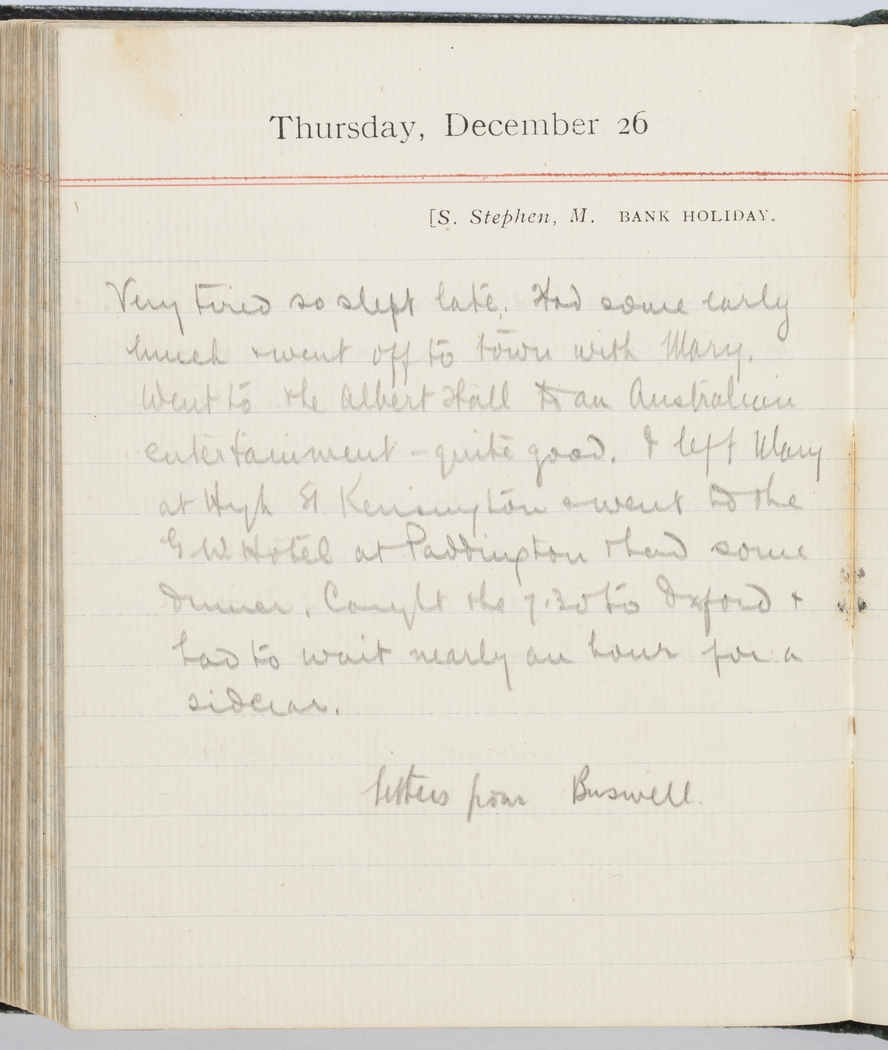 Thursday, December 26
[S. Stephen, M. BANK HOLIDAY.
Very tired so slept late. Had some early
lunch & went off to town with Mary.
Went to the Albert Hall to an Australian
entertainment - quite good. I left Mary
at High St Kensington & went to the
G W. Hotel at Paddington & had some
dinner. Caught the 7.30 to Oxford &
had to wait nearly an hour for a
sidecar.
letters from Buswell.